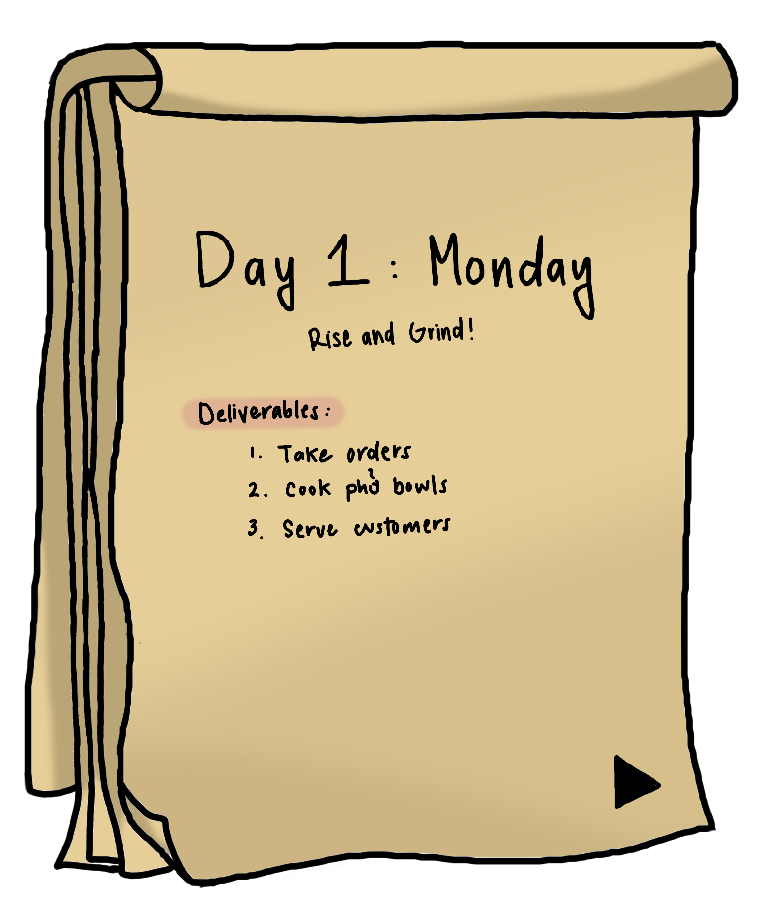 Day 1 : Monday
Rise and Grind!
Deliverables:
1. Take orders
2. Cook phở bowls
3. Serve customers